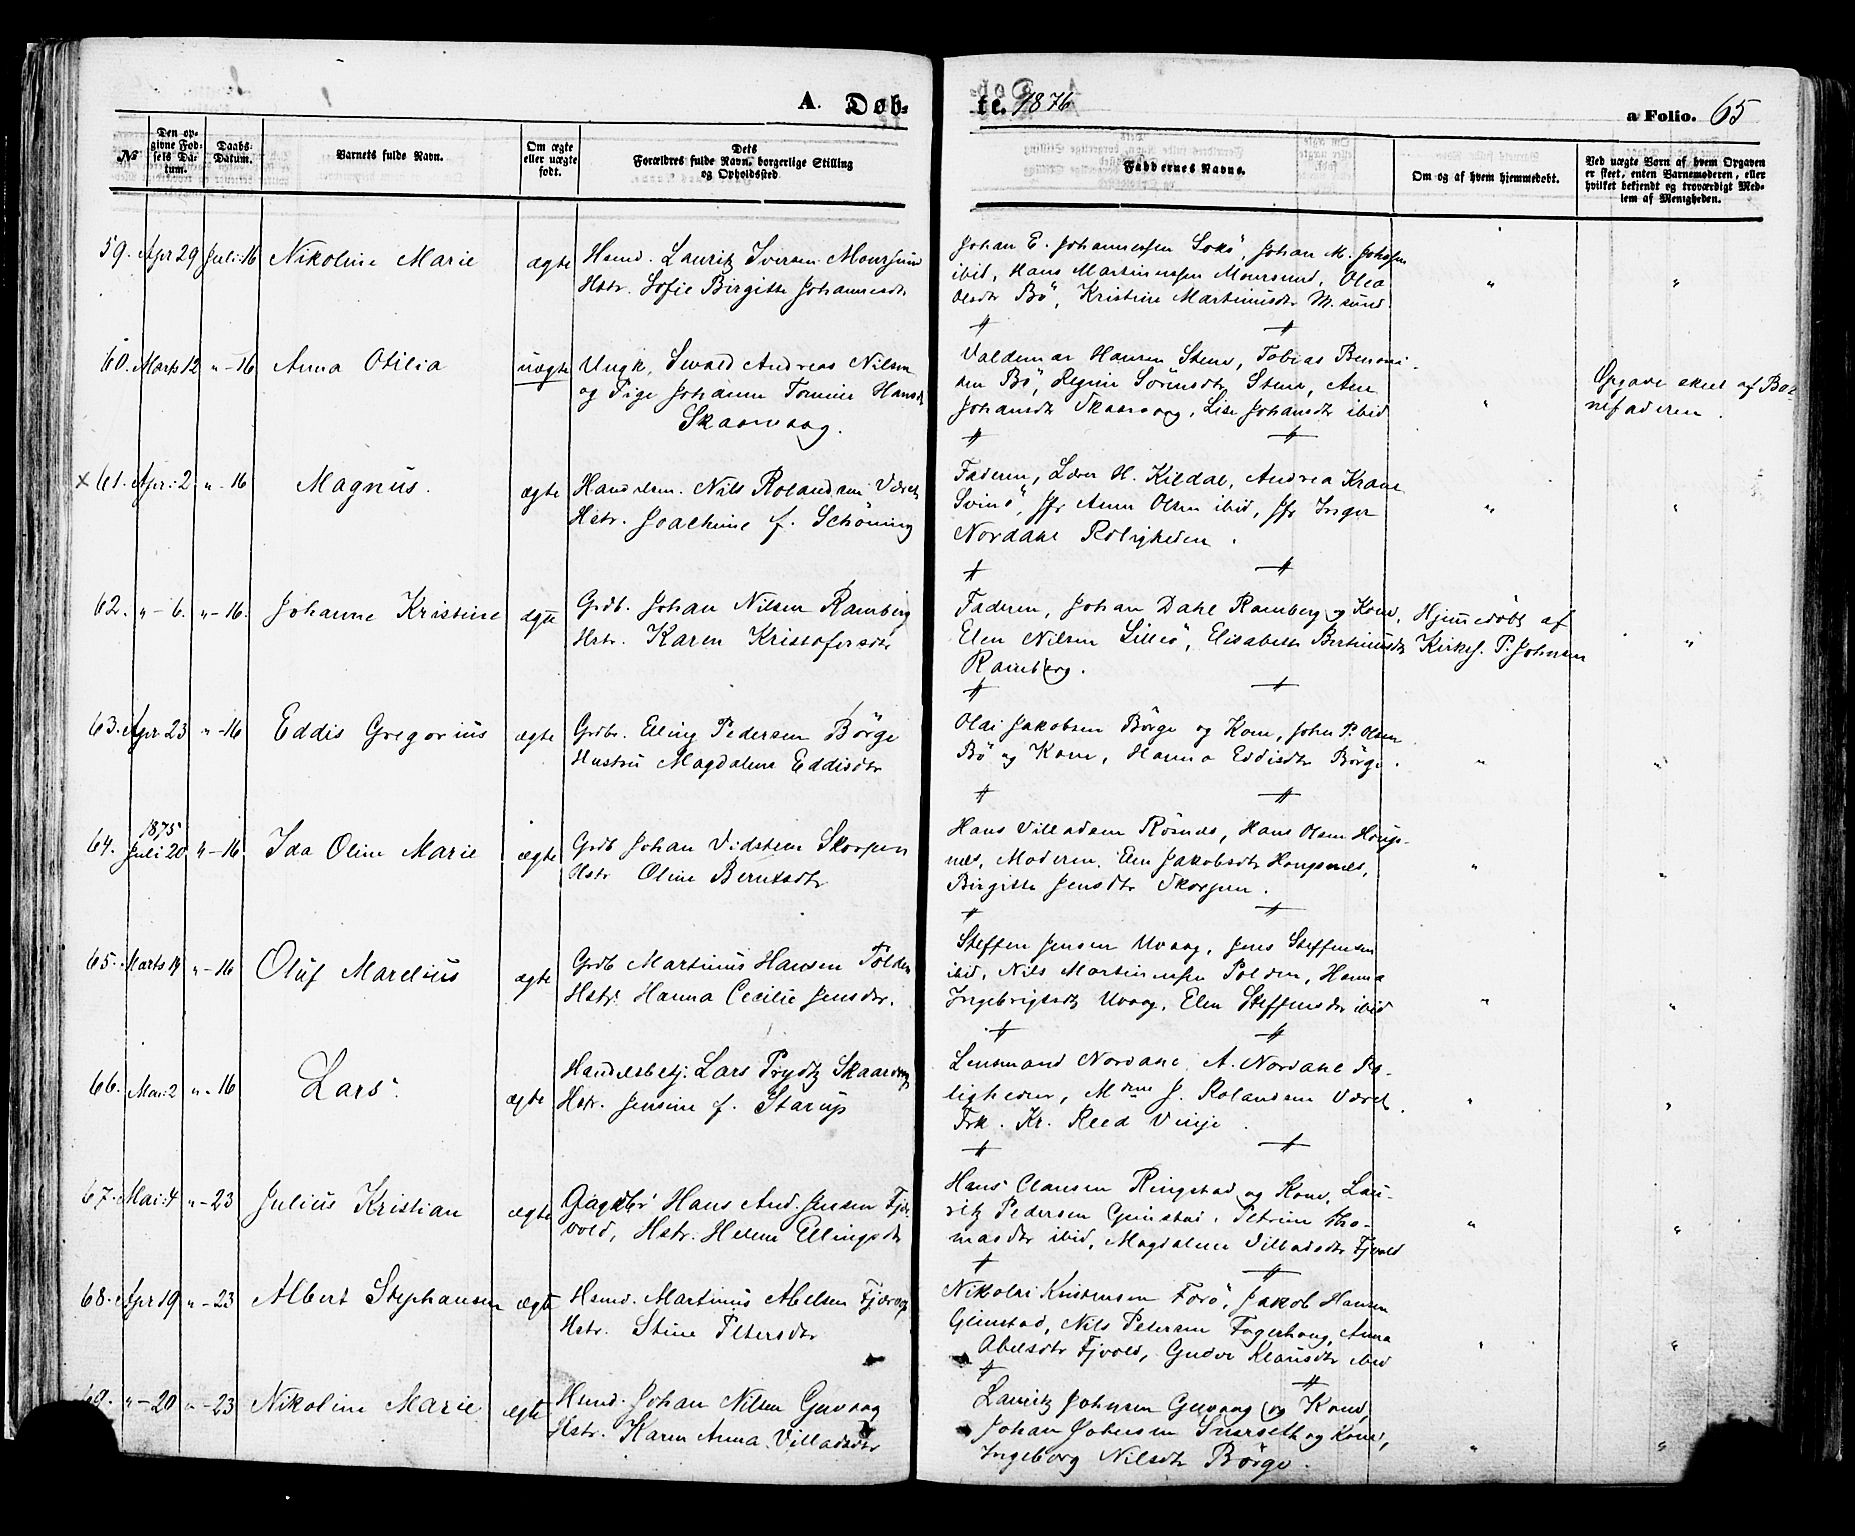 A. Døb-
te. 1876
a Folio. 65
№
Den op-
givne Fød-
sels Da-
tum.
Daabs-
Datum.
Barnets fulde Navn.
Om ægte
eller uægte
født.
Dets
Forældres fulde Navn, borgerlige Stilling
og Opholdssted.
Faddernes Navne.
Om og af hvem hjemmedøbt.
Ved uægte Børn af hvem Opgaven
er skeet, enten Barnemoderen, eller
hvilket bekjendt og troværdigt Med-
lem af Menigheden.
59. Apr 29 Juli 16 Nikoline Marie ægte Hsmd. Lauritz Iversen Moursund
Hstr. Sofie Birgitte Johannesdtr
Johan E. Johannessen Sokø, Johan M. Johsen
ibid, Hans Martinussen Moursund, Olea
Olsdtr Bø, Kristine Martinusdtr M.sund.
60. Marts 12 " - 16 Anna Otilia uægte Ungk. Edvard Andreas Nilsen
og Pige Johanna Tomine Hansdt
Skaarvaag.
Valdemar Hansen Steine, Tobias Benoni-
sen Bø, Regine Sørensdtr Steine, Ane
Johansdtr Skaarvaag, Lise Johansdtr ibid
Opgave skeet af Bar-
nefaderen.
× 61. Apr. 2 " - 16 Magnus. ægte Handelsm. Nils Rolandsen Været
Hstr. Joachine f. Schöning
Faderen, Lærer H. Kildal, Andrea Krane
Svinø, Jfr Anna Olsen ibid, Jfr Inger
Nordahl Roligheden.
62. " - 6. " - 16. Johanne Kristine ægte Grdb. Johan Nilsen Ramberg
Hstr. Karen Kristofersdtr
Faderen, Johan Dahl Ramberg og Kone,
Elen Nilsen Lilleø, Elisabeth Bertinusdtr
Ramberg.
Hjemmedøbt af
Kirkes. P. Johnsen
63. Apr 23 " - 16 Eddis Gregorius ægte Grdbr. Eling Pedersen Børge
Hustru Magdalena Eddisdtr
Olai Jakobsen Børge og Kone, John P. Olsen
Bø og Kone, Hanna Eddisdtr Børge.
64. 1875
Juli 20 " - 16. Ida Oline Marie ægte Grdb Johan Vidsteen Skorpen
Hstr Oline Berntsdtr
Hans Villadsen Røsnes, Hans Olsen Hougs-
næs, Moderen, Elen Jakobsdtr Hougsnæs,
Birgitte Jensdtr Skorpen.
65. Marts 14 " - 16 Oluf Marelius ægte Grdb Martinus Hansen Polden
Hstr. Hanna Cecilie Jensdtr.
Steffen Jensen Uvaag, Jens Steffensen
ibid, Nils Martinussen Polden, Hanna
Ingebrigtsdtr Uvaag, Elen Steffensdtr ibid
66. Mai 2 " - 16 Lars. ægte Handelsbetj. Lars Prydtz Skaarvaag
Hstr. Jensine f. Starup
Lensmand Nordahl, A. Nordahl Ro-
ligheden, Mdme J. Rolandsen Været.
Frk. Kr. Reed Vinje.
67. Mai 4 " - 23 Julius Kristian ægte Gagdbr Hans And. Jensen Fjær-
vold, Hstr. Helene Ellingsdtr
Hans Clausen Ringstad og Kone, Lau-
ritz Pedersen Guinstad, Petrine Tho-
masdtr ibid, Magdalena Villadsdtr Fjvold
68. Apr 19 " - 23 Albert Stephansen ægte Hsmd. Martinus Abelsen Fjærvold
Hstr. Stine Petersdtr
Nikolai Kristensen Forø, Jakob Hansen
Guinstad, Nils Petersen Fagerhaug, Anna
Abelsdtr Fjvold, Gudve Klausdtr ibid
69. " - 20 " - 23 Nikoline Marie ægte Hsmd. Johan Nilsen Guvaag
Hstr. Karen Anna Villadsdtr
Lauritz Johnsen Guvaag og Kone,
Johan Johnsen Snarseth og Kone,
Ingeborg Nilsdtr Børge.